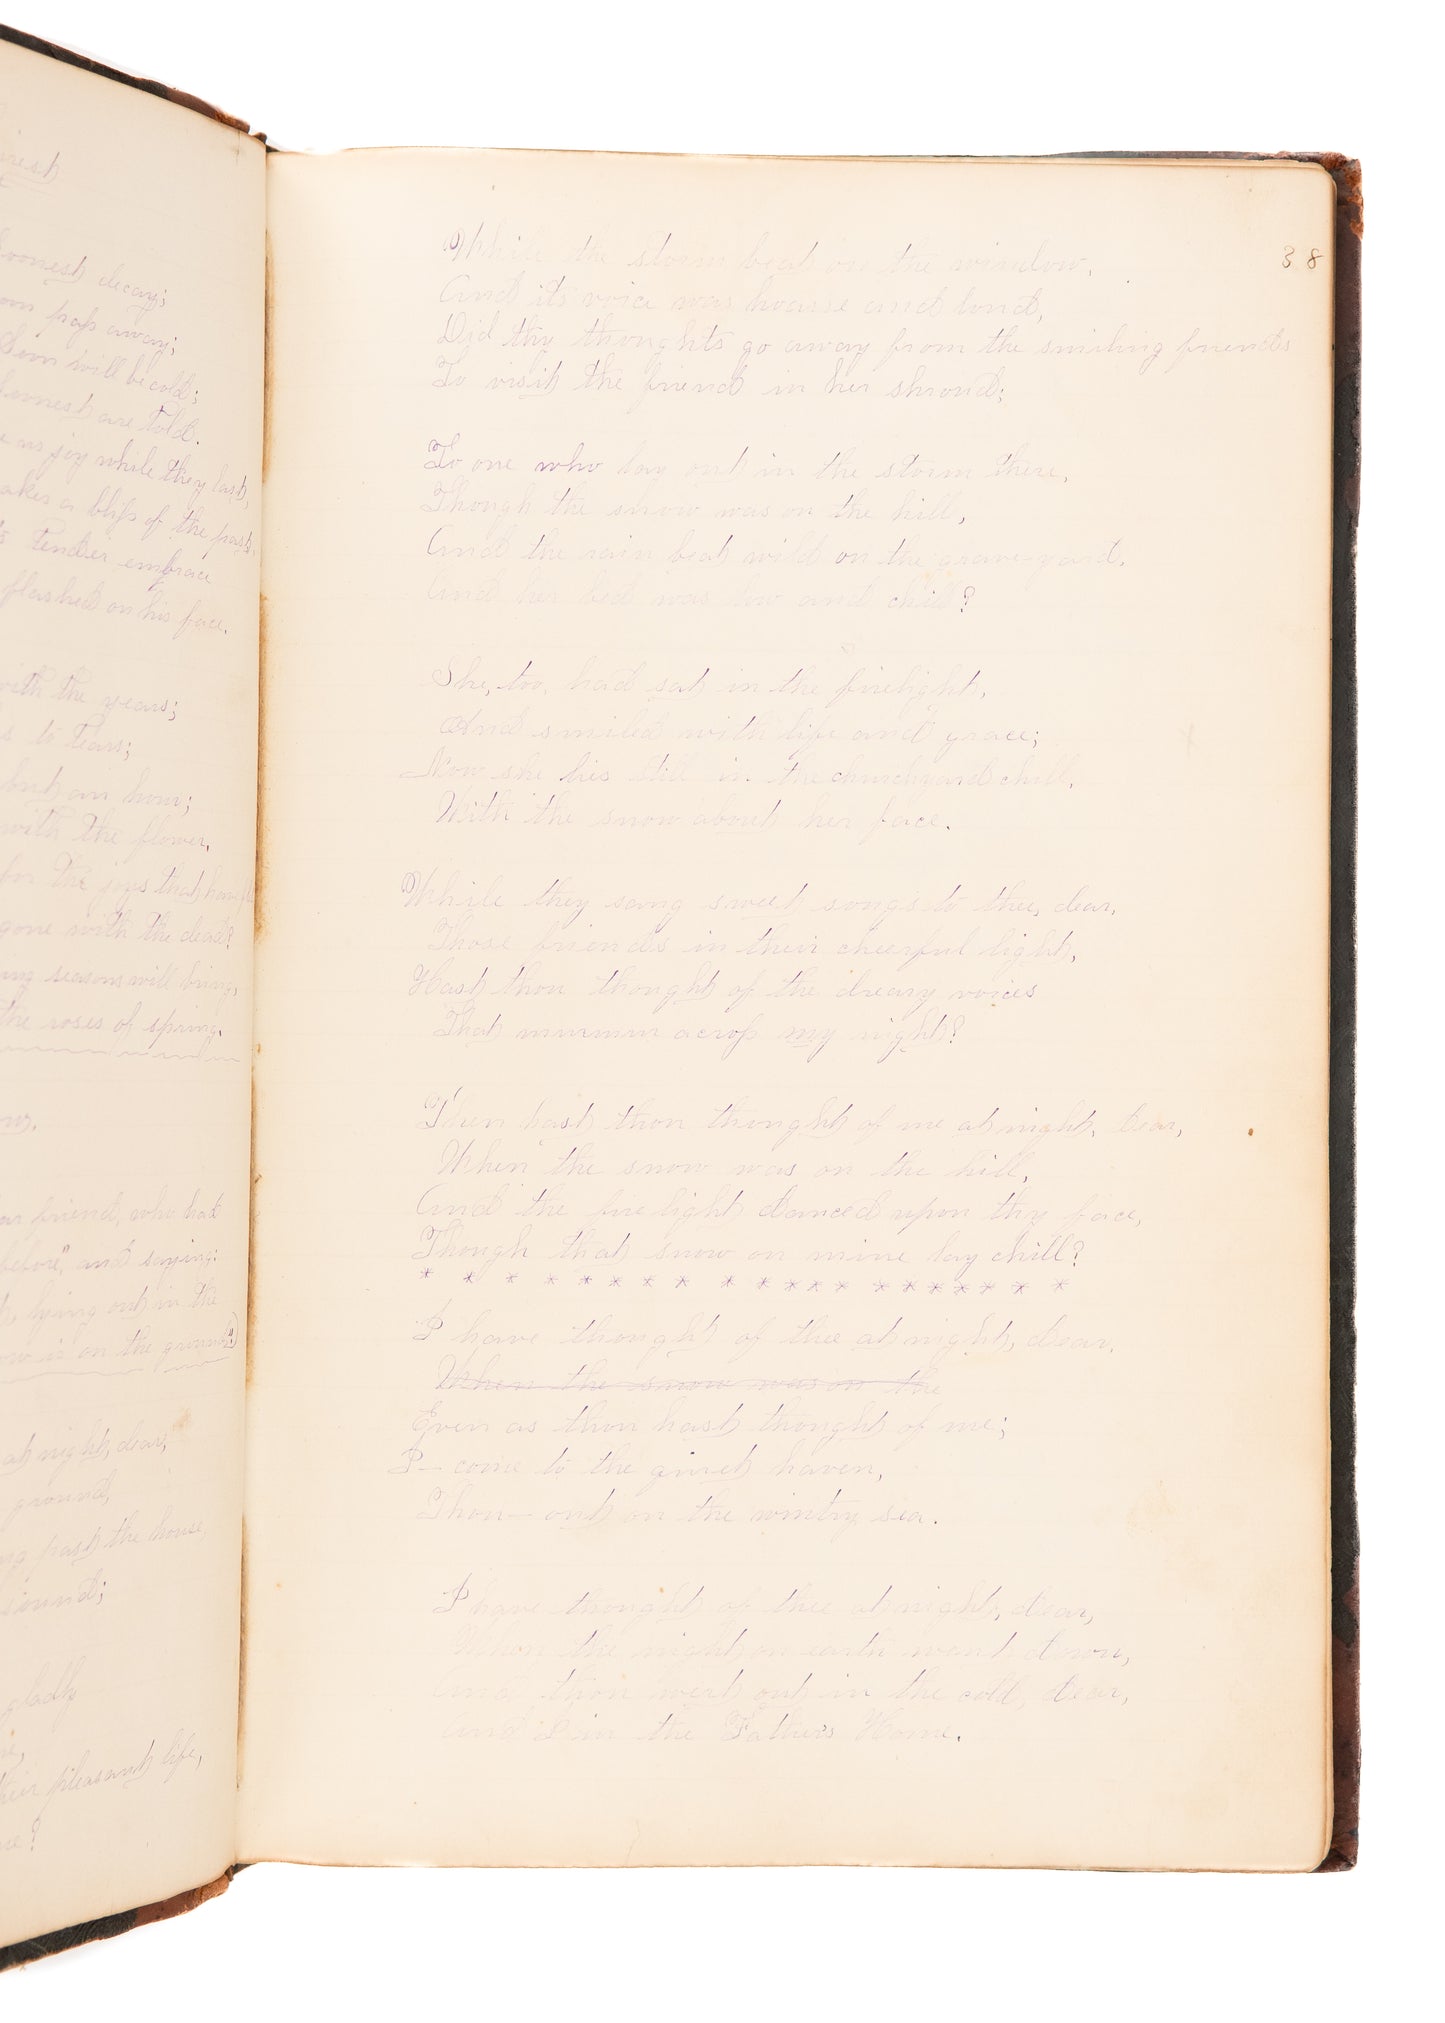 inest
oonest decay;
on pass away;
Soon will be cold;
loonest are told.
us joy while they last,
akes a bliss of the past.
's tender embrace
flashed on his face.
with the years;
s to tears;
but an hour;
with the flower,
for the joys that have
gone with the dead?
ing seasons will bring,
the roses of spring.
ar friend, who had
before", and saying:
lying out in the
ow is on the ground")
at night, dear,
ground,
ng past the house,
sound;
gladly
their pleasant life,
38
While the storm beat on the window,
And its voice was hoarse and loud,
Did thy thoughts go away from the smiling friends
To visit the friend in her shroud;
To one who lay out in the storm there,
Though the snow was on the hill,
And the rain beat wild on the grave-yard,
And her bed was low and chill?
She, too, had sat in the firelight,
And smiled with life and grace;
Now she lies still in the churchyard chill,
With the snow about her face.
While they sang sweet songs to thee, dear,
Those friends in their cheerful light,
Hast thou thought of the dreary voices
That murmur across my night?
Then hast thou thought of me at night, dear,
When the snow was on the hill,
And the firelight danced upon thy face,
Though that snow on mine lay chill?
* * * * * * * * * * * * * * * * * * *
I have thought of thee at night, dear,
When the snow was on the
Even as thou hast thought of me;
I— come to the quiet haven,
Thou— out on the wintry sea.
I have thought of thee at night, dear,
When the night on earth went down,
And thou wert out in the cold, dear,
And I in the Father's Home.